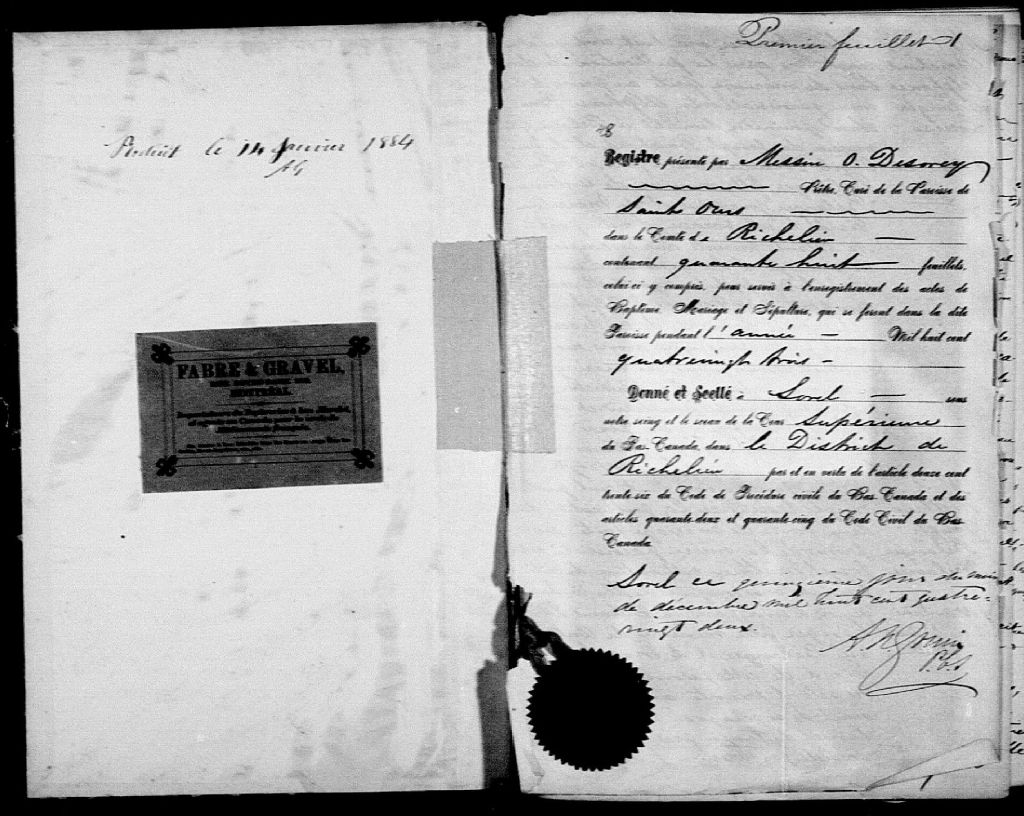 Produit le 14 Janvier 1884
AG
FABRE & GRAVEL,
MONTREAL.
Premier feuillet 1
Registre présenté par Messire O. Desorcy
Prêtre, Curé de la Paroisse de
Saint Ours
dans le Comté de Richelieu
contenant quarante huit feuillets,
celui-ci y compris, pour servir à l'enregistrement des actes de
Baptême, Mariage et Sépulture, qui se feront dans la dite
Paroisse pendant l'année Mil huit cent
quatrevingt trois
Donné et Scellé à Sorel sous
notre seing et le sceau de la Cour Supérieure
du Bas-Canada, dans le District de
Richelieu par et en vertu de l'article douze cent
trente-six du Code de Procédure civile du Bas-Canada et des
articles quarante-deux et quarante-cinq du Code Civil du Bas-
Canada
Sorel ce quinzième jour du mois
de décembre mil huit cent quatre-
vingt deux.
P.C.S